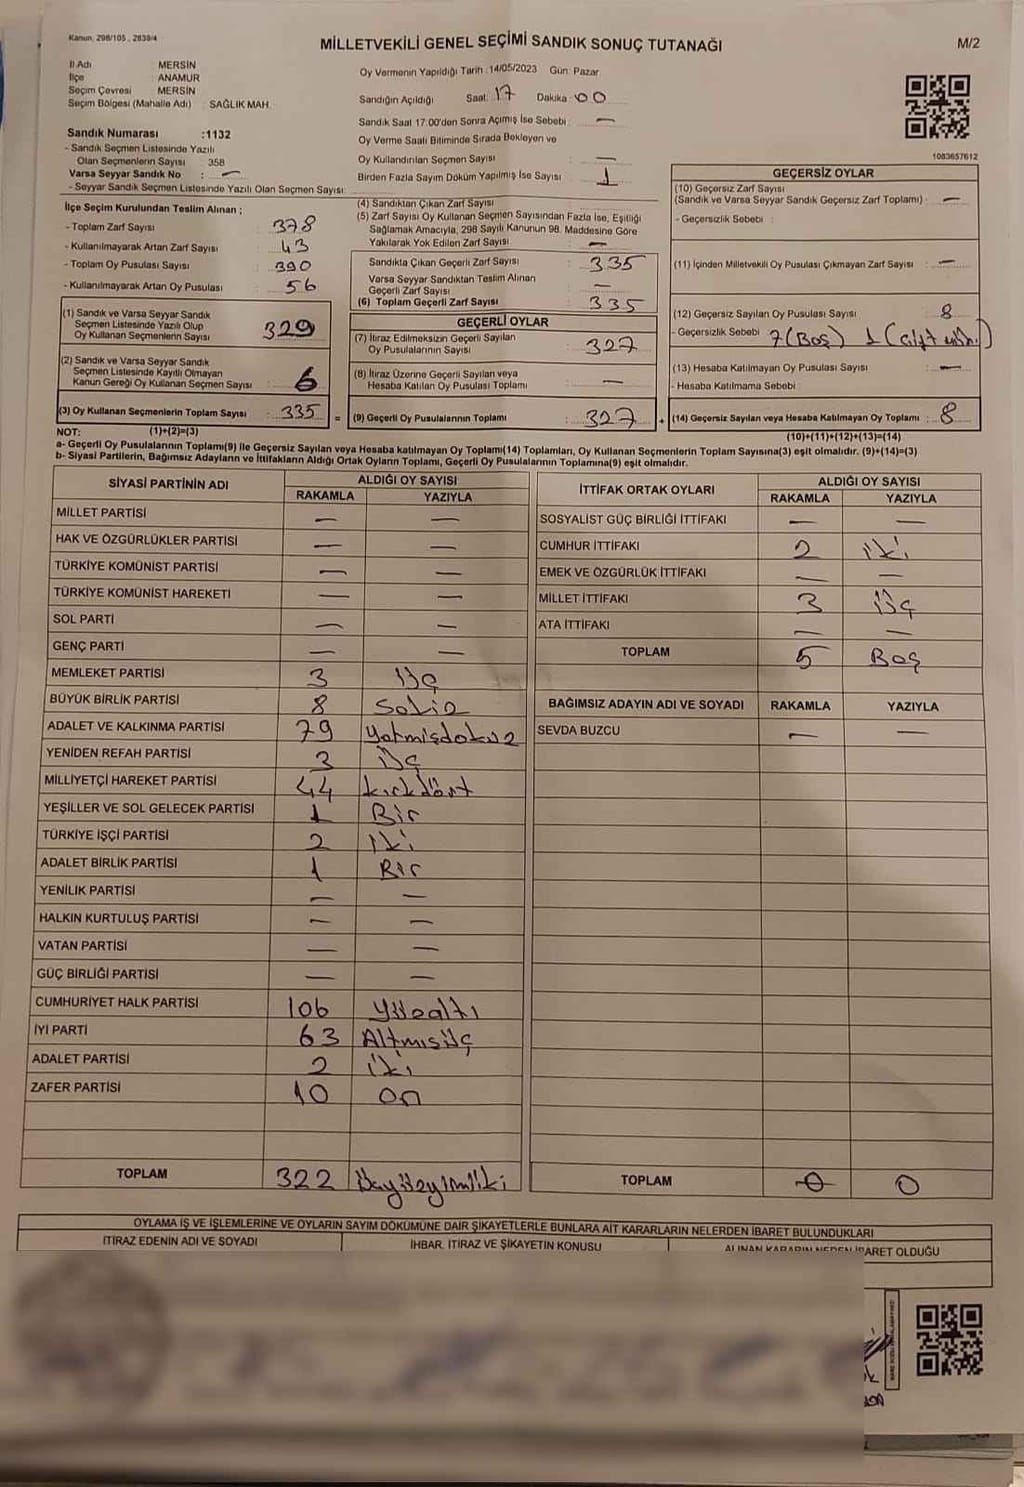 Kanun, 298/105, 2839/4
MİLLETVEKİLİ GENEL SEÇİMİ SANDIK SONUÇ TUTANAĞI
M/2
İl Adı MERSİN
İlçe ANAMUR
Seçim Çevresi MERSİN
Seçim Bölgesi (Mahalle Adı) : SAĞLIK MAH.
Sandık Numarası :1132
- Sandık Seçmen Listesinde Yazılı
Olan Seçmenlerin Sayısı : 358
Varsa Seyyar Sandık No : —
- Seyyar Sandık Seçmen Listesinde Yazılı Olan Seçmen Sayısı:
Oy Vermenin Yapıldığı Tarih :14/05/2023 Gün: Pazar
Sandığın Açıldığı Saat: 17 Dakika: 00
Sandık Saat 17.00'den Sonra Açımış İse Sebebi : —
Oy Verme Saati Bitiminde Sırada Bekleyen ve
Oy Kullandırılan Seçmen Sayısı : —
Birden Fazla Sayım Döküm Yapılmış İse Sayısı : 1
1083657612
İlçe Seçim Kurulundan Teslim Alınan ;
- Toplam Zarf Sayısı : 378
- Kullanılmayarak Artan Zarf Sayısı : 43
- Toplam Oy Pusulası Sayısı : 390
- Kullanılmayarak Artan Oy Pusulası : 56
(1) Sandık ve Varsa Seyyar Sandık
Seçmen Listesinde Yazılı Olup
Oy Kullanan Seçmenlerin Sayısı : 329
(2) Sandık ve Varsa Seyyar Sandık
Seçmen Listesinde Kayıtlı Olmayan
Kanun Gereği Oy Kullanan Seçmen Sayısı : 6
(3) Oy Kullanan Seçmenlerin Toplam Sayısı : 335
(4) Sandıktan Çıkan Zarf Sayısı :
(5) Zarf Sayısı Oy Kullanan Seçmen Sayısından Fazla İse, Eşitliği
Sağlamak Amacıyla, 298 Sayılı Kanunun 98. Maddesine Göre
Yakılarak Yok Edilen Zarf Sayısı : —
Sandıkta Çıkan Geçerli Zarf Sayısı : 335
Varsa Seyyar Sandıktan Teslim Alınan
Geçerli Zarf Sayısı : —
(6) Toplam Geçerli Zarf Sayısı : 335
GEÇERLİ OYLAR
(7) İtiraz Edilmeksizin Geçerli Sayılan
Oy Pusulalarının Sayısı : 327
(8) İtiraz Üzerine Geçerli Sayılan veya
Hesaba Katılan Oy Pusulası Toplamı : —
= (9) Geçerli Oy Pusulalarının Toplamı : 327
GEÇERSİZ OYLAR
(10) Geçersiz Zarf Sayısı
(Sandık ve Varsa Seyyar Sandık Geçersiz Zarf Toplamı) : —
- Geçersizlik Sebebi :
(11) İçinden Milletvekili Oy Pusulası Çıkmayan Zarf Sayısı : —
(12) Geçersiz Sayılan Oy Pusulası Sayısı : 8
- Geçersizlik Sebebi : 7 (Boş) 1 (Çift
(13) Hesaba Katılmayan Oy Pusulası Sayısı : —
- Hesaba Katılmama Sebebi :
+ (14) Geçersiz Sayılan veya Hesaba Katılmayan Oy Toplamı : 8
NOT: (1)+(2)=(3)
(10)+(11)+(12)+(13)=(14)
a- Geçerli Oy Pusulalarının Toplamı(9) ile Geçersiz Sayılan veya Hesaba katılmayan Oy Toplamı(14) Toplamları, Oy Kullanan Seçmenlerin Toplam Sayısına(3) eşit olmalıdır. (9)+(14)=(3)
b- Siyasi Partilerin, Bağımsız Adayların ve İttifakların Aldığı Ortak Oyların Toplamı, Geçerli Oy Pusulalarının Toplamına(9) eşit olmalıdır.
SİYASİ PARTİNİN ADI ALDIĞI OY SAYISI
RAKAMLA YAZIYLA
MİLLET PARTİSİ — —
HAK VE ÖZGÜRLÜKLER PARTİSİ — —
TÜRKİYE KOMÜNİST PARTİSİ — —
TÜRKİYE KOMÜNİST HAREKETİ — —
SOL PARTİ — —
GENÇ PARTİ — —
MEMLEKET PARTİSİ 3 Üç
BÜYÜK BİRLİK PARTİSİ 8 Sekiz
ADALET VE KALKINMA PARTİSİ 79 Yetmişdokuz
YENİDEN REFAH PARTİSİ 3 Üç
MİLLİYETÇİ HAREKET PARTİSİ 44 kırkdört
YEŞİLLER VE SOL GELECEK PARTİSİ 1 Bir
TÜRKİYE İŞÇİ PARTİSİ 2 İki
ADALET BİRLİK PARTİSİ 1 Bir
YENİLİK PARTİSİ — —
HALKIN KURTULUŞ PARTİSİ — —
VATAN PARTİSİ — —
GÜÇ BİRLİĞİ PARTİSİ — —
CUMHURİYET HALK PARTİSİ 106 Yüzaltı
İYİ PARTİ 63 Altmışüç
ADALET PARTİSİ 2 iki
ZAFER PARTİSİ 10 on
TOPLAM 322 Üçyüzyirmiiki
İTTİFAK ORTAK OYLARI ALDIĞI OY SAYISI
RAKAMLA YAZIYLA
SOSYALİST GÜÇ BİRLİĞİ İTTİFAKI — —
CUMHUR İTTİFAKI 2 iki
EMEK VE ÖZGÜRLÜK İTTİFAKI — —
MİLLET İTTİFAKI 3 üç
ATA İTTİFAKI — —
TOPLAM 5 Beş
BAĞIMSIZ ADAYIN ADI VE SOYADI RAKAMLA YAZIYLA
SEVDA BUZCU — —
TOPLAM 0 0
OYLAMA İŞ VE İŞLEMLERİNE VE OYLARIN SAYIM DÖKÜMÜNE DAİR ŞİKAYETLERLE BUNLARA AİT KARARLARIN NELERDEN İBARET BULUNDUKLARI
İTİRAZ EDENİN ADI VE SOYADI İHBAR, İTİRAZ VE ŞİKAYETİN KONUSU ALINAN KARARIN NEDEN İBARET OLDUĞU